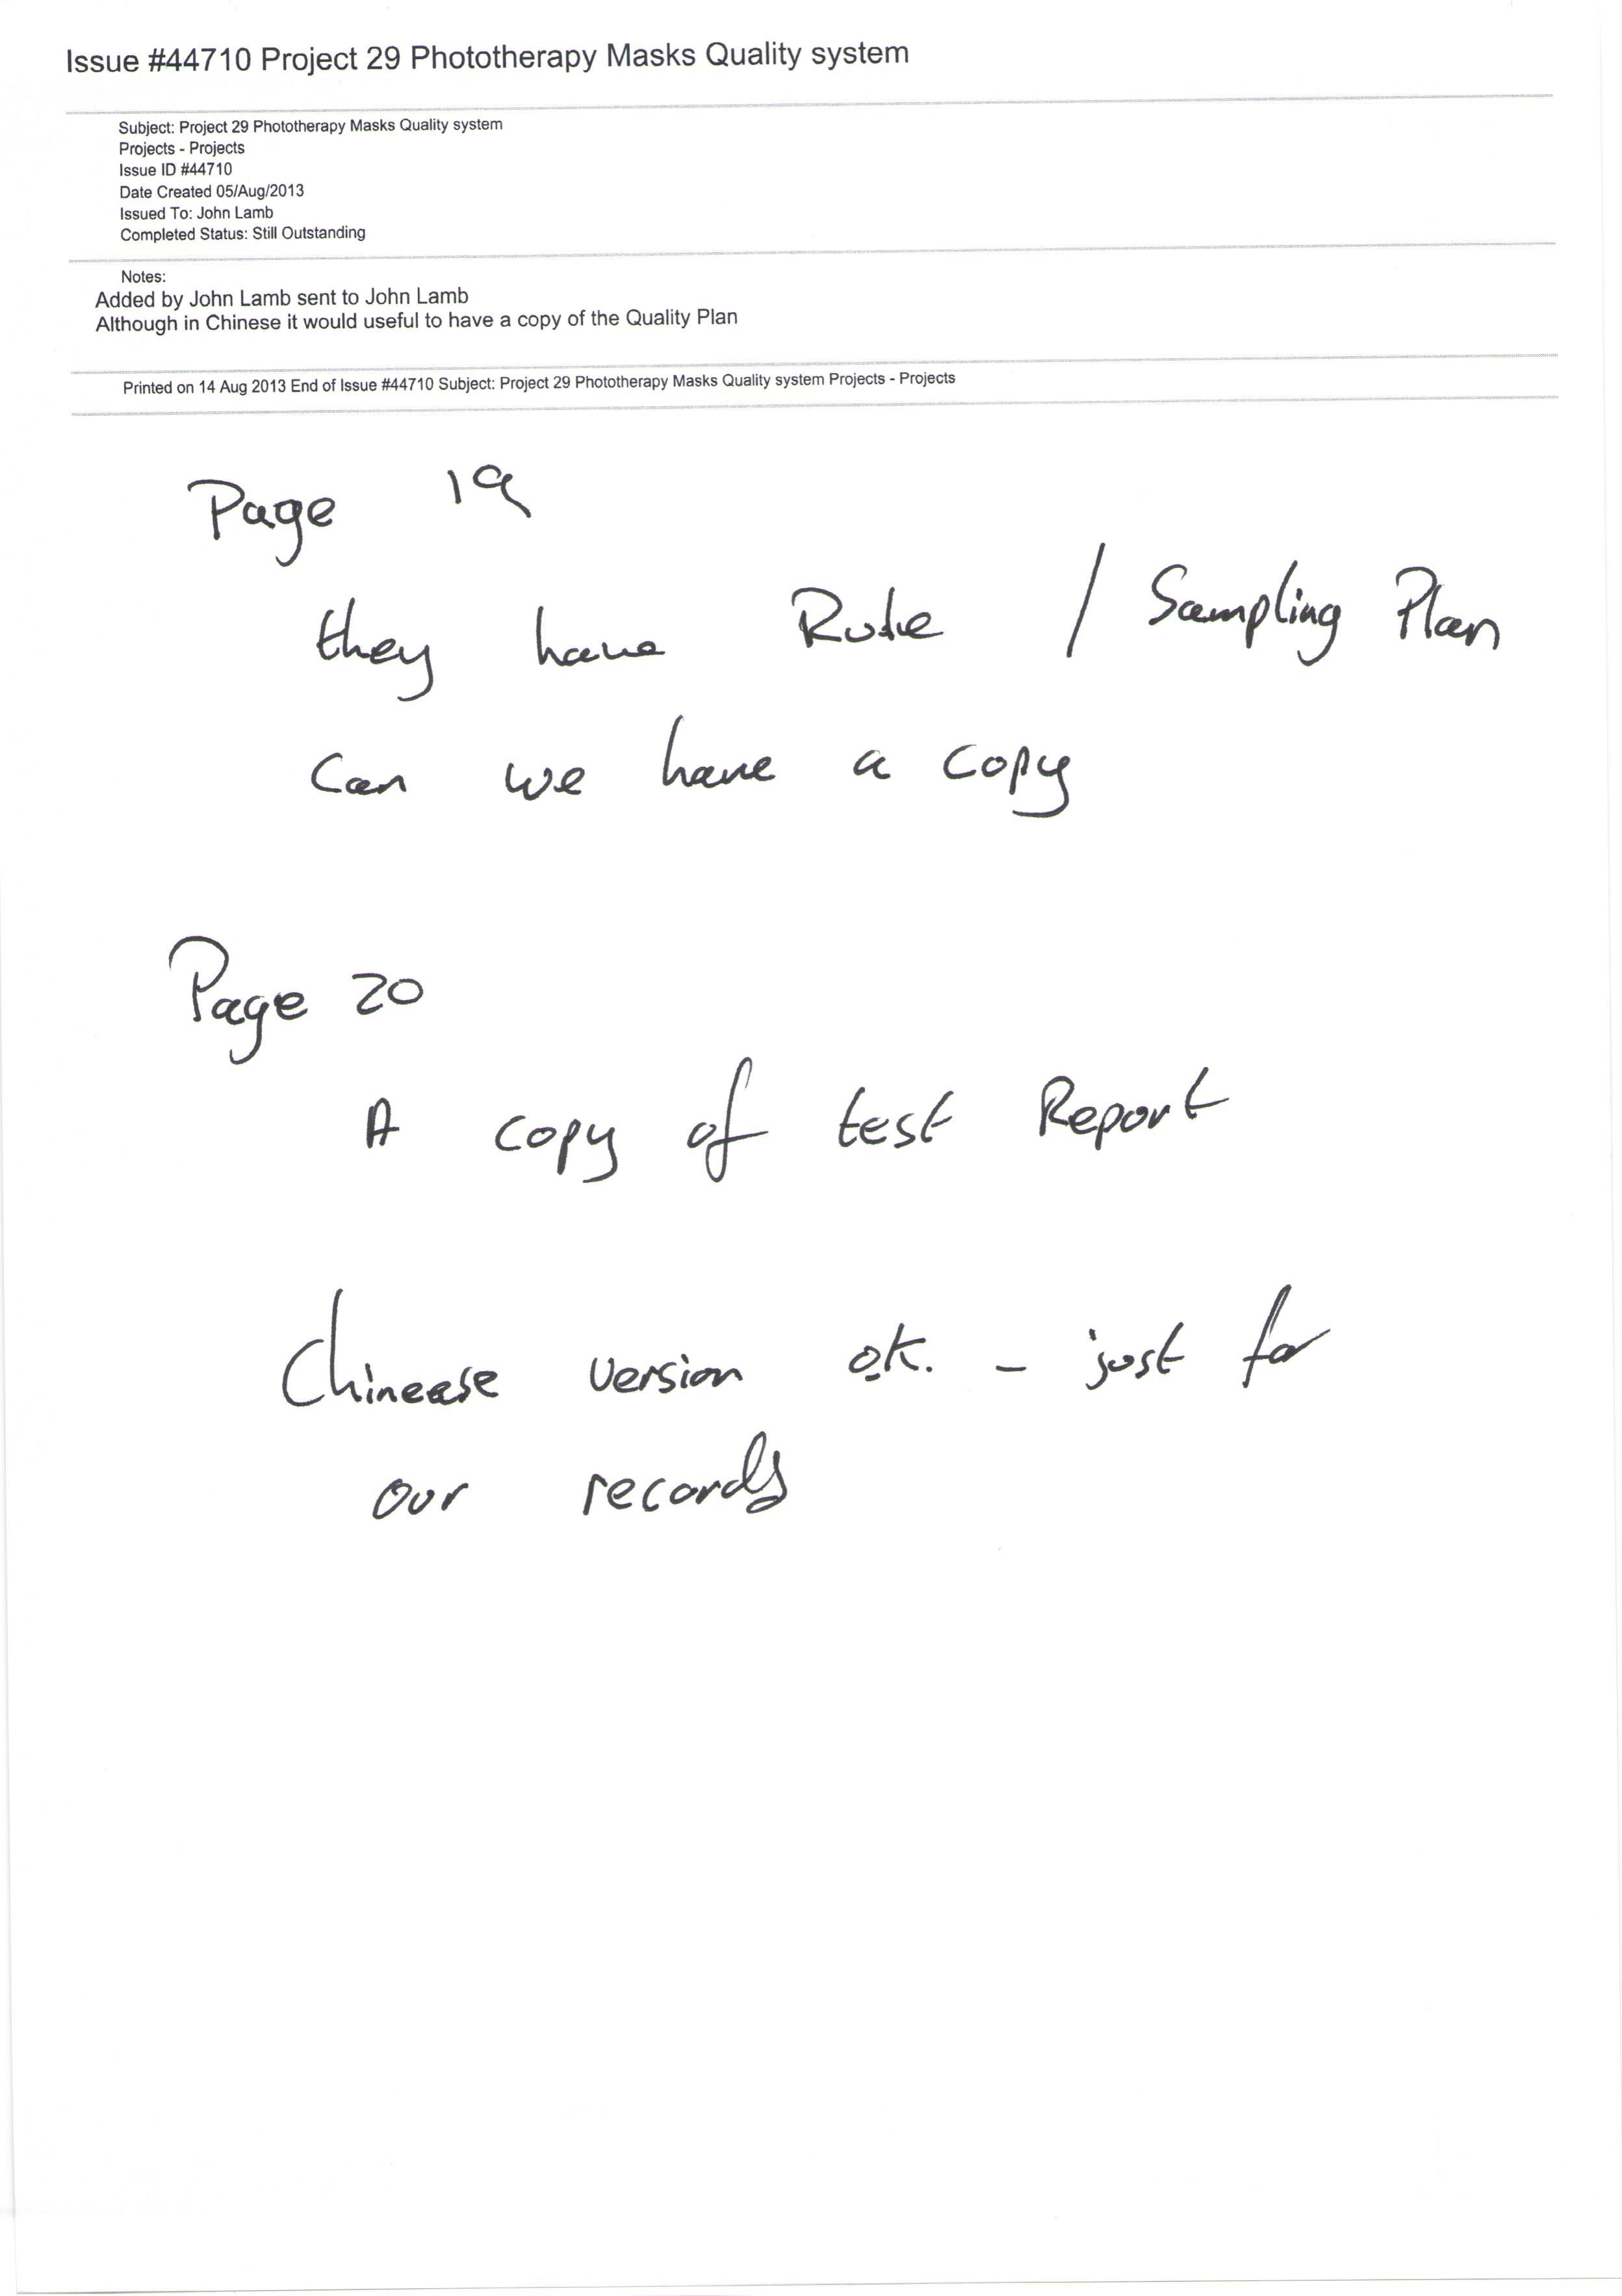 Issue #44710 Project 29 Phototherapy Masks Quality system
Subject: Project 29 Phototherapy Masks Quality system
Projects - Projects
Issue ID #44710
Date Created 05/Aug/2013
Issued To: John Lamb
Completed Status: Still Outstanding
Notes:
Added by John Lamb sent to John Lamb
Although in Chinese it would useful to have a copy of the Quality Plan
Printed on 14 Aug 2013 End of Issue #44710 Subject: Project 29 Phototherapy Masks Quality system Projects - Projects
Page 19
they have / Sampling Plan
Can we have a copy
Page 20
A copy of test Report
Chineese version ok. - just for
our records